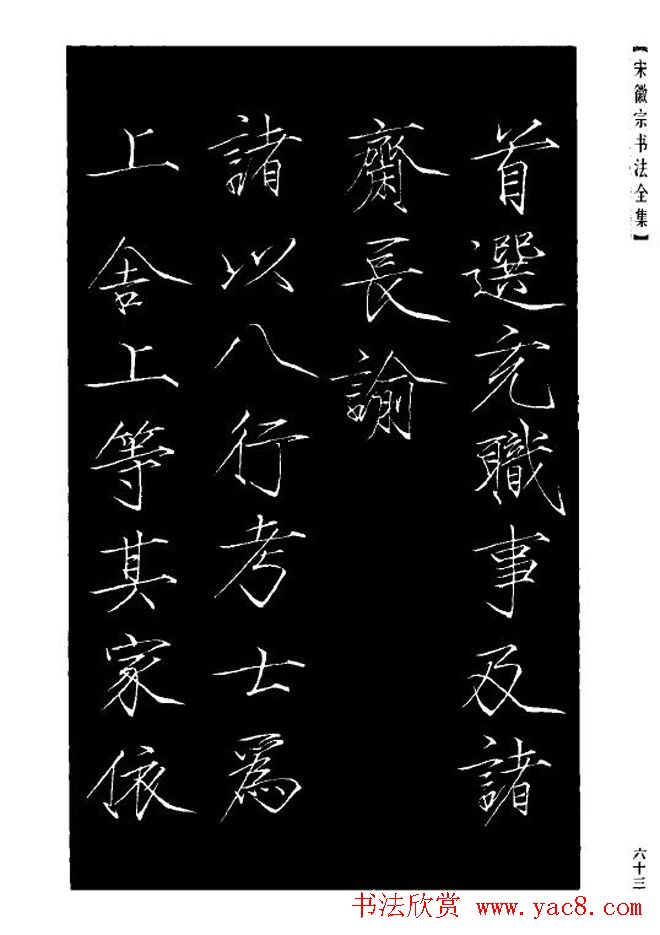 【宋徽宗书法全集】
首選充職事及諸
齋長諭
諸以八行考士為
上舍上等其家依
六十三
书法欣赏 www.yac8.com